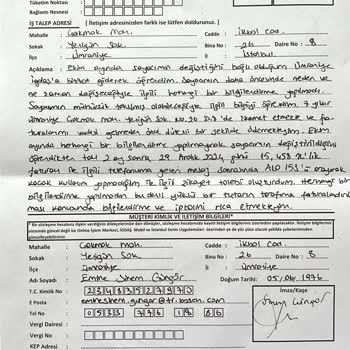 Tüketim Noktası
Bağlantı Nesnesi
İŞ TALEP ADRESİ [ İletişim adresinizden farklı ise lütfen doldurunuz. ]
Mahalle : Çakmak Mah. Cadde : ikbal Cad.
Sokak : Yeşilgün Sok. Bina No : 26 Daire No : 8
İlçe : Ümraniye İl : İstanbul
Açıklama : Ekim ayında sayacımın değiştiğini bağlı olduğum Ümraniye
igdaş'a bizzat giderek öğrendim. Sayacımın daha öncesinde neden ve
ne zaman değişeceğiyle ilgili herhangi bir bilgilendirme yapılmadı.
Sayacımın mühürlü takılmış olabileceğiyle ilgili bilgiyi öğrendim. 7 yıldır
Ümraniye Çakmak Mah. Yeşilgün Sok. No 26 D:8 'de ikamet etmekte ve fa-
turalarımı vadesi gelmeden önce düzenli bir şekilde ödemekteyim. Ekim
ayında herhangi bir bilgilendirme yapılmayarak sayacımın değiştirildiğini
öğrendikten tam 2 ay sonra 29 Aralık 2024 günü 15,458 TL'lik
faturam ile ilgili telefonuma gelen mesaj sonrasında ALO 153'ü arayarak
kaçak kullanım yapmadığım ile ilgili şikayet talebi oluşturdum. Herhangi bir
bilgilendirme yapılmadan bu yüklü bir tutarın tarafıma faturalandırıl-
ması konusunda bilgilendirme ve iptalini rica etmekteyim.
MÜŞTERİ KİMLİK VE İLETİŞİM BİLGİLERİ*
Mahalle : Çakmak Mah. Cadde : ikbal Cad.
Sokak : Yeşilgün Sok. Bina No : 26 Daire No : 8
İlçe : Ümraniye İl : Ümraniye
Adı Soyadı : Emine Sinem Güngör Doğum Tarihi : 05/06/1976
T.C. Kimlik No : 23483527970 İmza/Kaşe
E Posta
Tel No : 0533 776 1886
Vergi Dairesi :
Vergi No
KEP Adresi